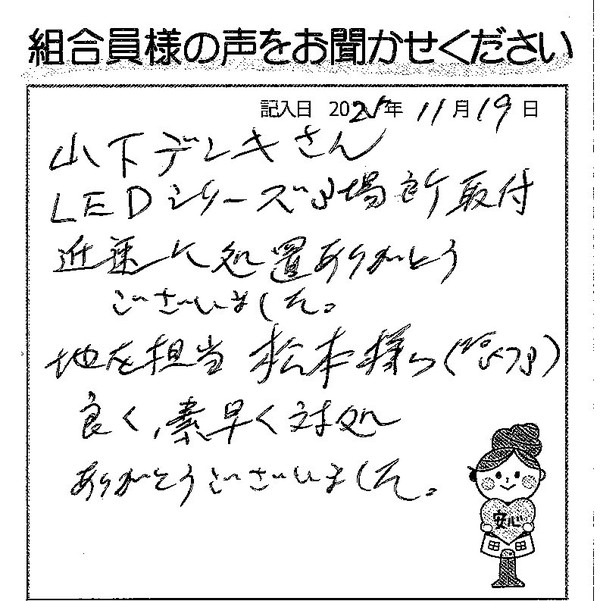 組合員様の声をお聞かせください
記入日 2025年 11月19日
山下デンキさん
LEDシリーズ3場所取付
迅速に処置ありがとう
ございました。
地を担当 松本様
良く、素早く対処
ありがとうございました。
安心